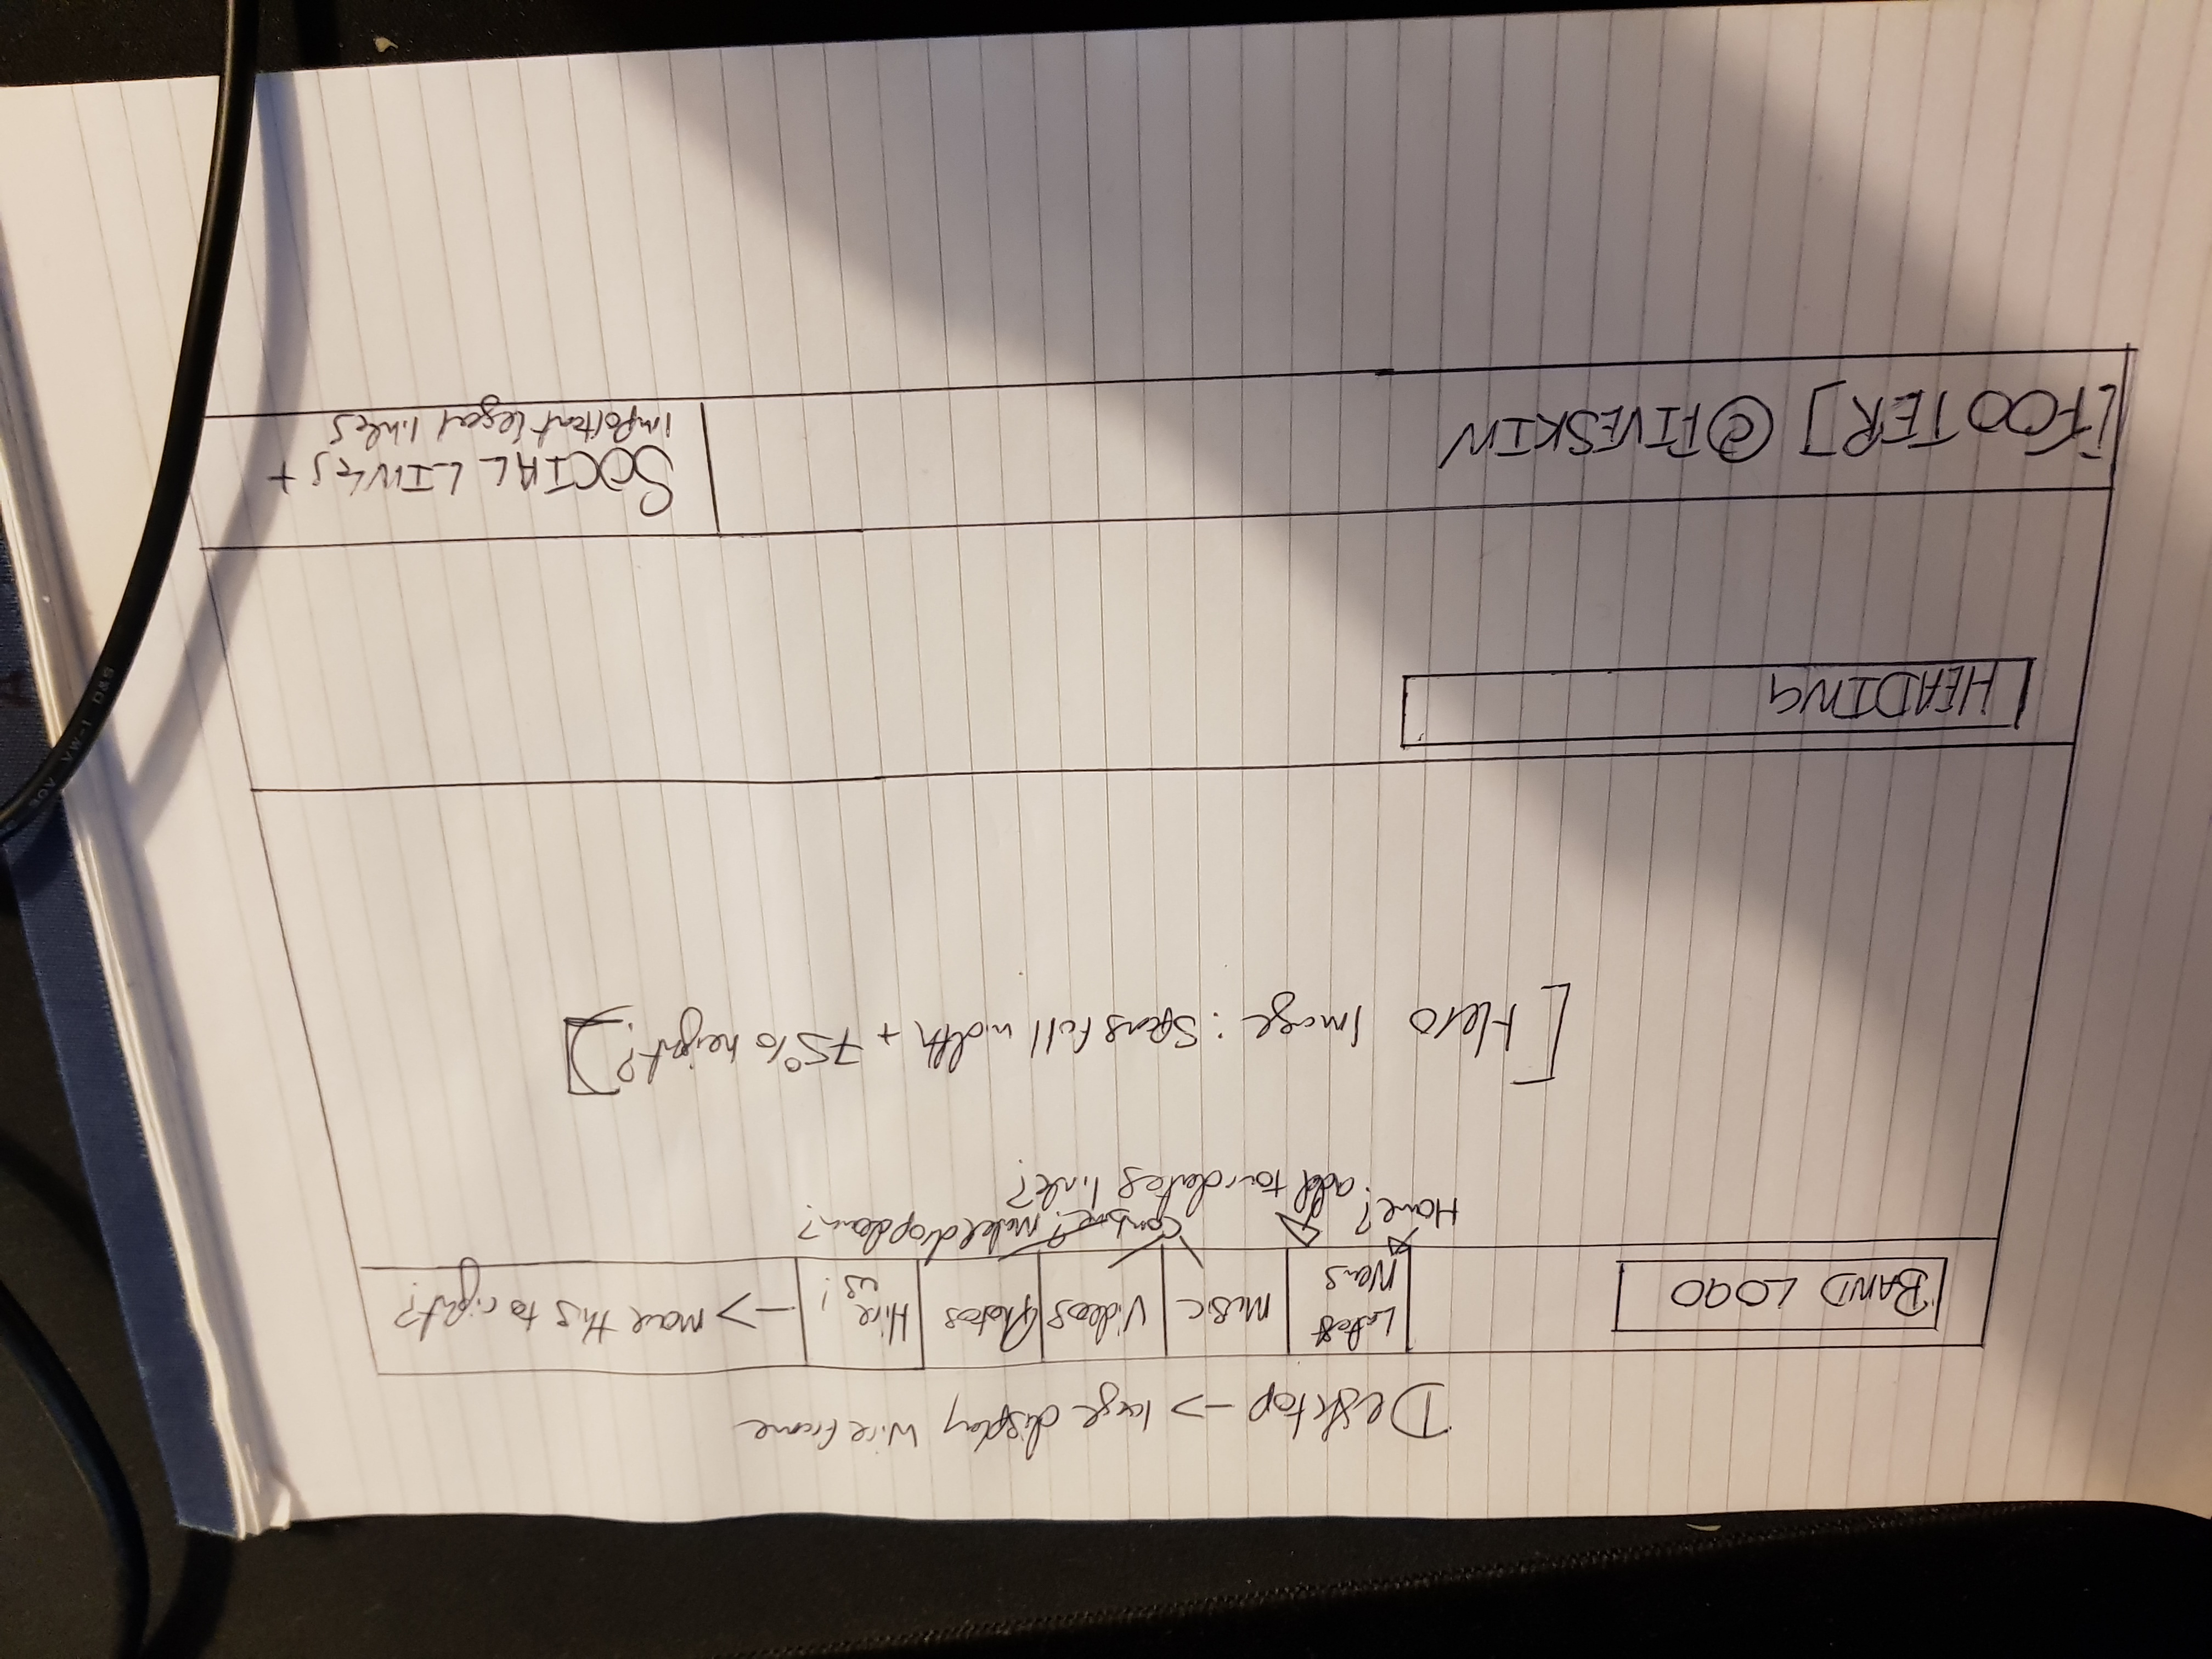 Desktop -> large display Wireframe
BAND LOGO
Latest
News
Music
Videos
Photos
Hire
us!
-> move this to right?
Home?
Combine? Make dropdown?
add tour dates link?
[Hero Image: Spans full width + 75% height?]
HEADING
[FOOTER] © FIVESKIN
SOCIAL LINKS +
important legal links
30V VW-1